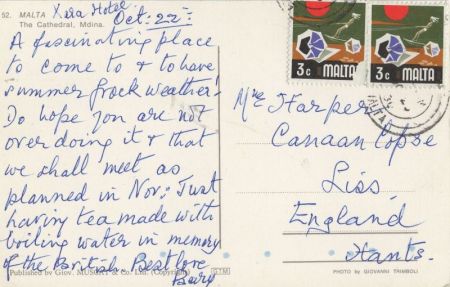 52. MALTA Xara Hotel,
The Cathedral, Mdina. Oct: 22nd
A fascinating place
to come to & to have
summer frock weather!
Do hope you are not
over doing it & that
we shall meet as
planned in Nov: Just
having tea made with
boiling water in memory
of the British Best love
Published by Giov. MUSCAT & Co. Ltd. (Copyright) GTM
3c MALTA 3c MALTA
MALTA
Mrs Harper
Canaan Copse
Liss,
England
Hants.
PHOTO BY GIOVANNI TRIMBOLI